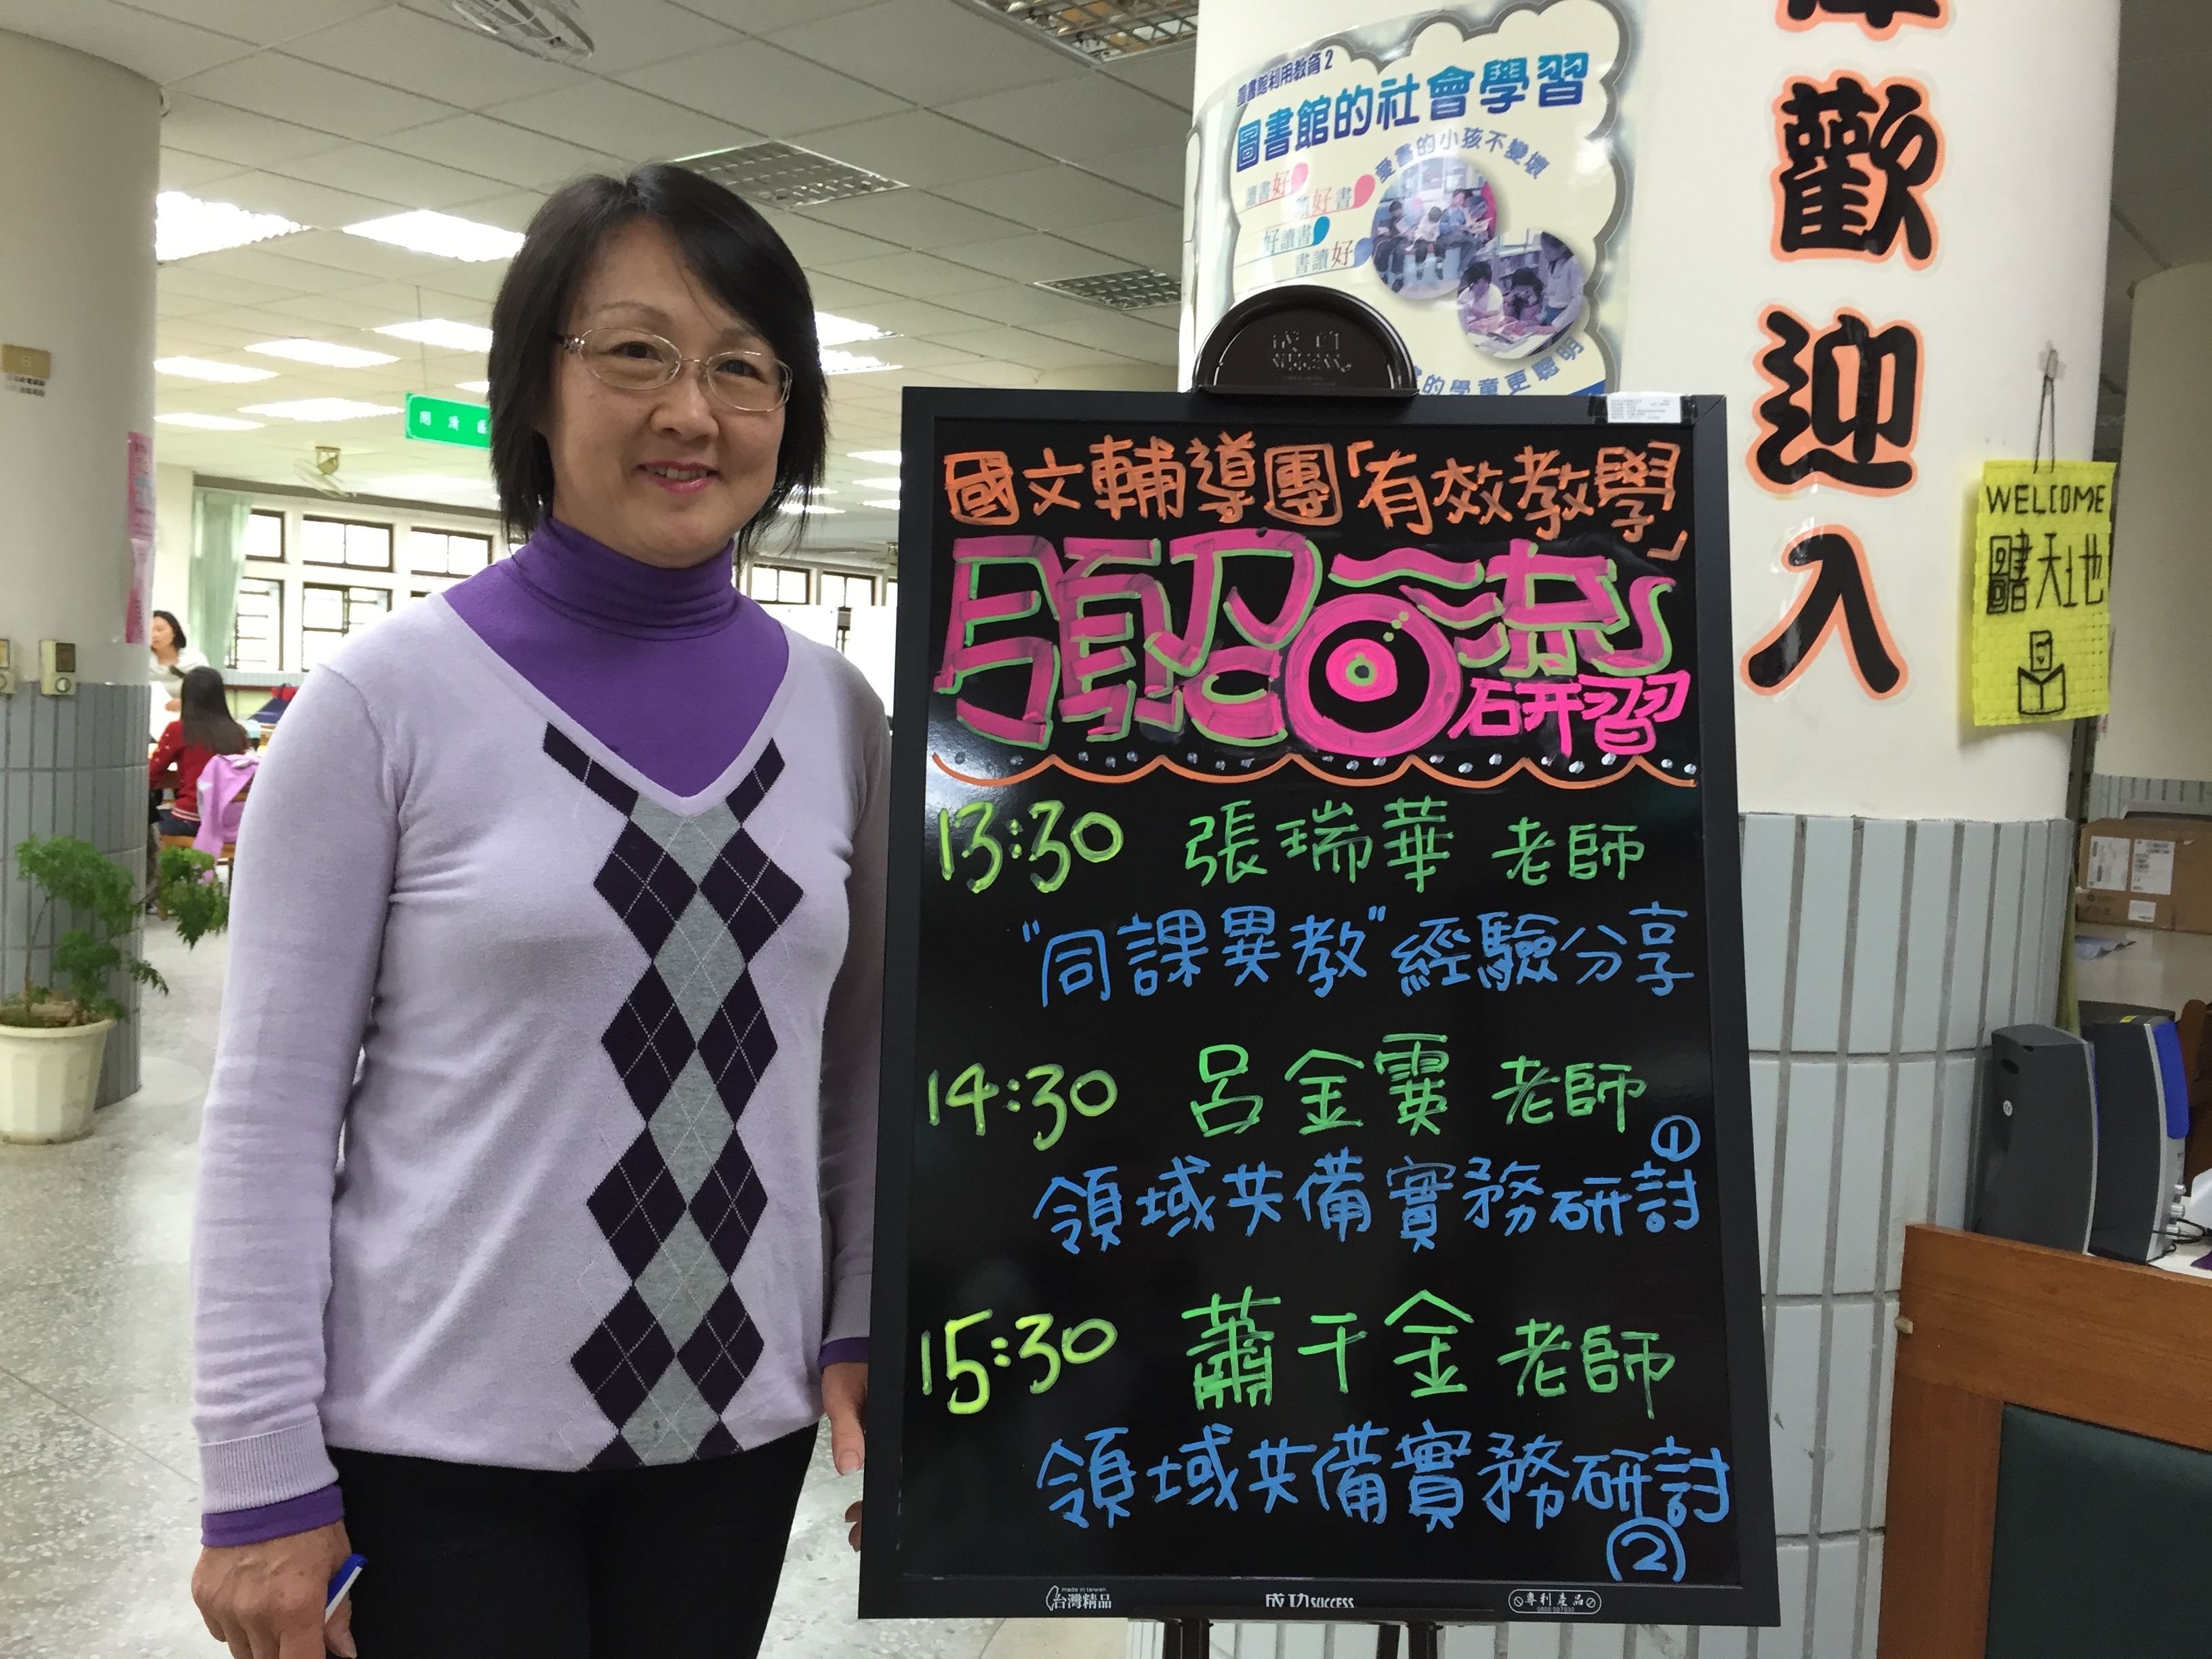 圖書館利用教育2
圖書館的社會學習
愛書的小孩不變壞
讀書好
讀好書
好讀書
書讀好
的學童更聰明
歡迎入
WELCOME
圖書天地
成功
SUCCESS
國文輔導團「有效教學」
頭沼畜流
研習
13:30 張瑞華 老師
"同課異教"經驗分享
14:30 呂金霙 老師
領域共備實務研討①
15:30 蕭千金 老師
領域共備實務研討②
made in taiwan
台灣精品
成功 SUCCESS
專利產品